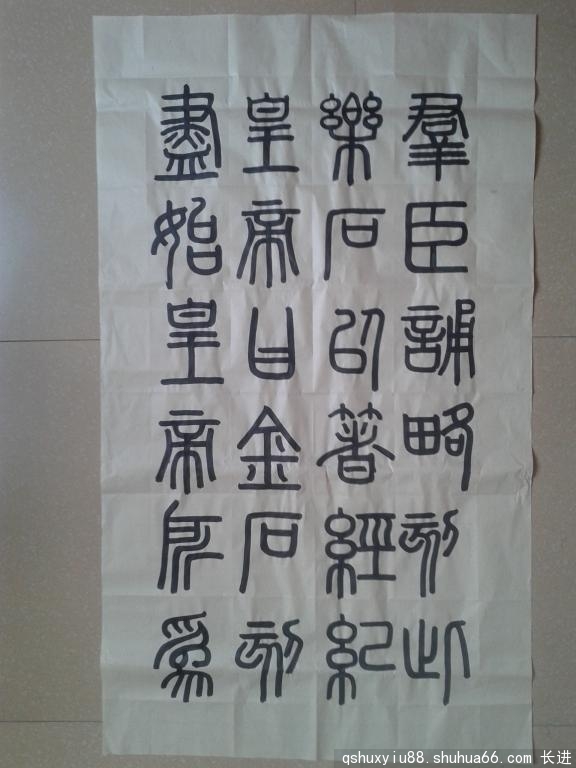 羣臣誦略刻此
樂石以著經紀
皇帝曰金石刻
盡始皇帝所爲
qshuxyiu88.shuhua66.com 长进